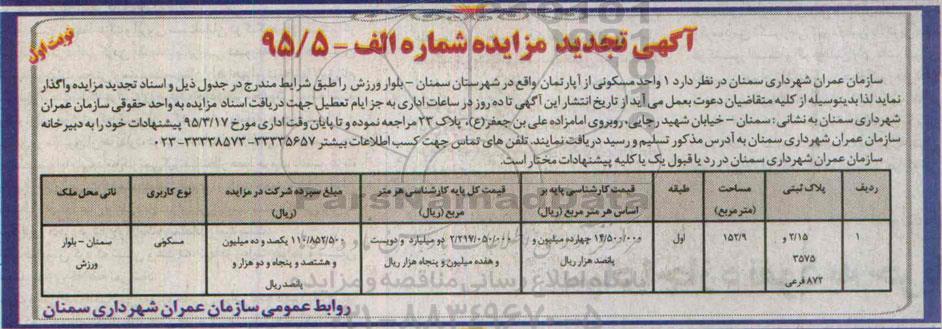 آگهی تجدید مزایده شماره الف - ۹۵/۵
نوبت اول
سازمان عمران شهرداری سمنان در نظر دارد ۱ واحد مسکونی از آپارتمان واقع در شهرستان سمنان - بلوار ورزش را طبق شرایط مندرج در جدول ذیل و اسناد تجدید مزایده واگذار
نماید لذا بدینوسیله از کلیه متقاضیان دعوت بعمل می آید از تاریخ انتشار این آگهی تا ده روز در ساعات اداری به جز ایام تعطیل جهت دریافت اسناد مزایده به واحد حقوقی سازمان عمران
شهرداری سمنان به نشانی: سمنان - خیابان شهید رجایی، روبروی امامزاده علی بن جعفر(ع)، پلاک ۲۳ مراجعه نموده و تا پایان وقت اداری مورخ ۹۵/۳/۱۷ پیشنهادات خود را به دبیرخانه
سازمان عمران شهرداری سمنان به آدرس مذکور تسلیم و رسید دریافت نمایند. تلفن های تماس جهت کسب اطلاعات بیشتر ۳۳۳۳۵۶۵۷-۳۳۳۳۸۵۷۳-۰۲۳
سازمان عمران شهرداری سمنان در رد یا قبول یک یا کلیه پیشنهادات مختار است.
ردیف پلاک ثبتی مساحت (متر مربع) طبقه قیمت کارشناسی پایه بر اساس هر متر مربع (ریال) قیمت کل پایه کارشناسی هر متر مربع (ریال) مبلغ سپرده شرکت در مزایده (ریال) نوع کاربری نائی محل ملک
۱ ۲/۱۵ و ۳۵۷۵ ۸۷۲ فرعی ۱۵۲/۹ اول ۱۴/۵۰۰/۰۰۰ چهارده میلیون و پانصد هزار ریال ۲/۲۱۷/۰۵۰/۰۰۰ دو میلیارد و دویست و هفده میلیون و پنجاه هزار ریال ۱۱۰/۸۵۲/۵۰۰ یکصد و ده میلیون و هشتصد و پنجاه و دو هزار و پانصد ریال مسکونی سمنان - بلوار ورزش
روابط عمومی سازمان عمران شهرداری سمنان
ParsNamadData
پایگاه اطلاع رسانی مناقصه و مزایده
۰۲۱-۸۸۳۴۹۶۷۰-۵